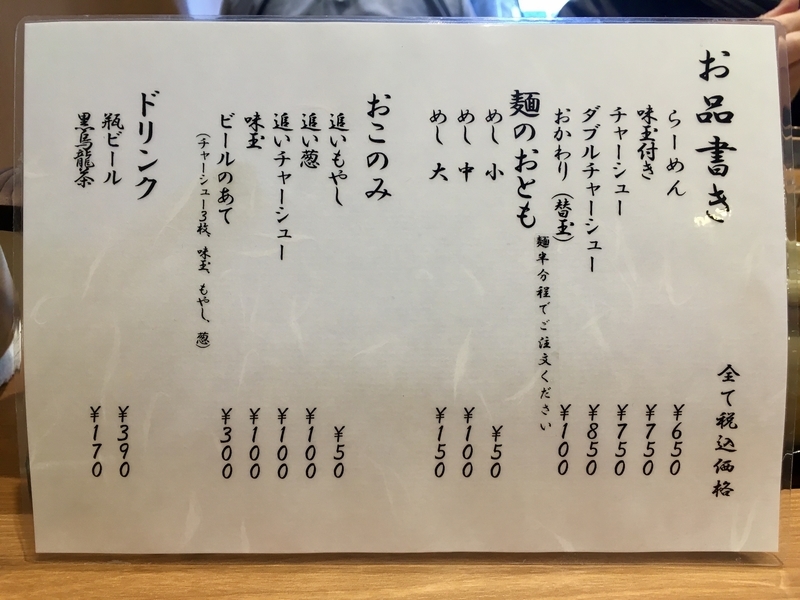 お品書き
全て税込価格
らーめん ¥650
味玉付き ¥750
チャーシュー ¥750
ダブルチャーシュー ¥850
おかわり(替玉) ¥100
麺半分程でご注文ください
麺のおとも
めし 小 ¥50
めし 中 ¥100
めし 大 ¥150
おこのみ
追いもやし ¥50
追い葱 ¥100
追いチャーシュー ¥100
味玉 ¥100
ビールのあて ¥300
(チャーシュー3枚、味玉、もやし、葱)
ドリンク
瓶ビール ¥390
黒烏龍茶 ¥170